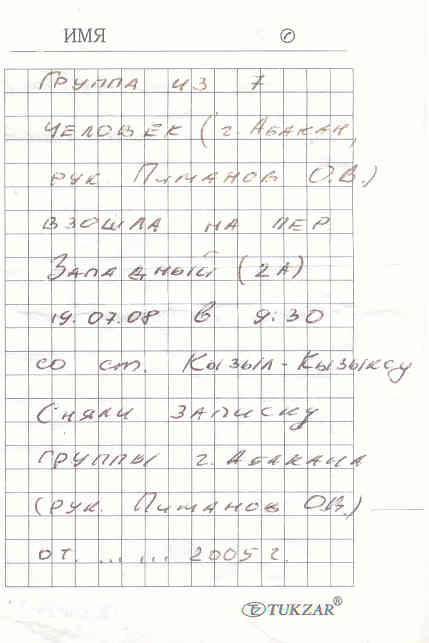 ИМЯ ✆
ГРУППА ИЗ 7
ЧЕЛОВЕК (г. АБАКАН,
рук. ПИМАНОВ О.В.)
ВЗОШЛА НА ПЕР
ЗАПАДНЫЙ (2А)
19.07.08 в 9:30
со ст. КЫЗЫЛ-КЫЗЫКСУ
СНЯЛИ ЗАПИСКУ
ГРУППЫ г. АБАКАНА
(рук. ПИМАНОВ О.В.)
от. ... ... 2005 г.
TUKZAR®